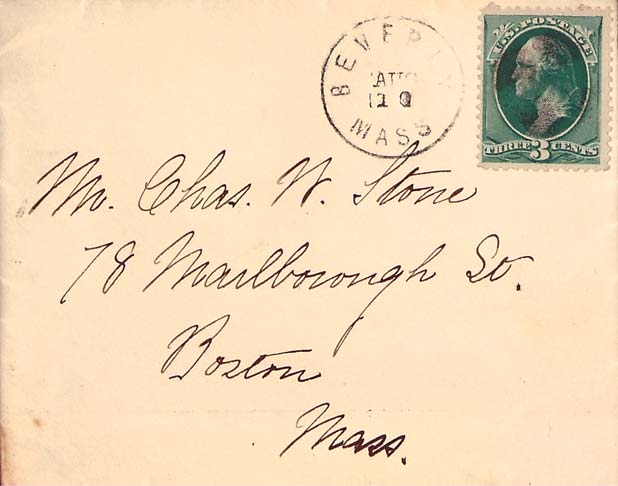 BEVERLY
MASS
U.S. POSTAGE
THREE 3 CENTS
Mr. Chas. W. Stone
78 Marlborough St.
Boston
Mass.